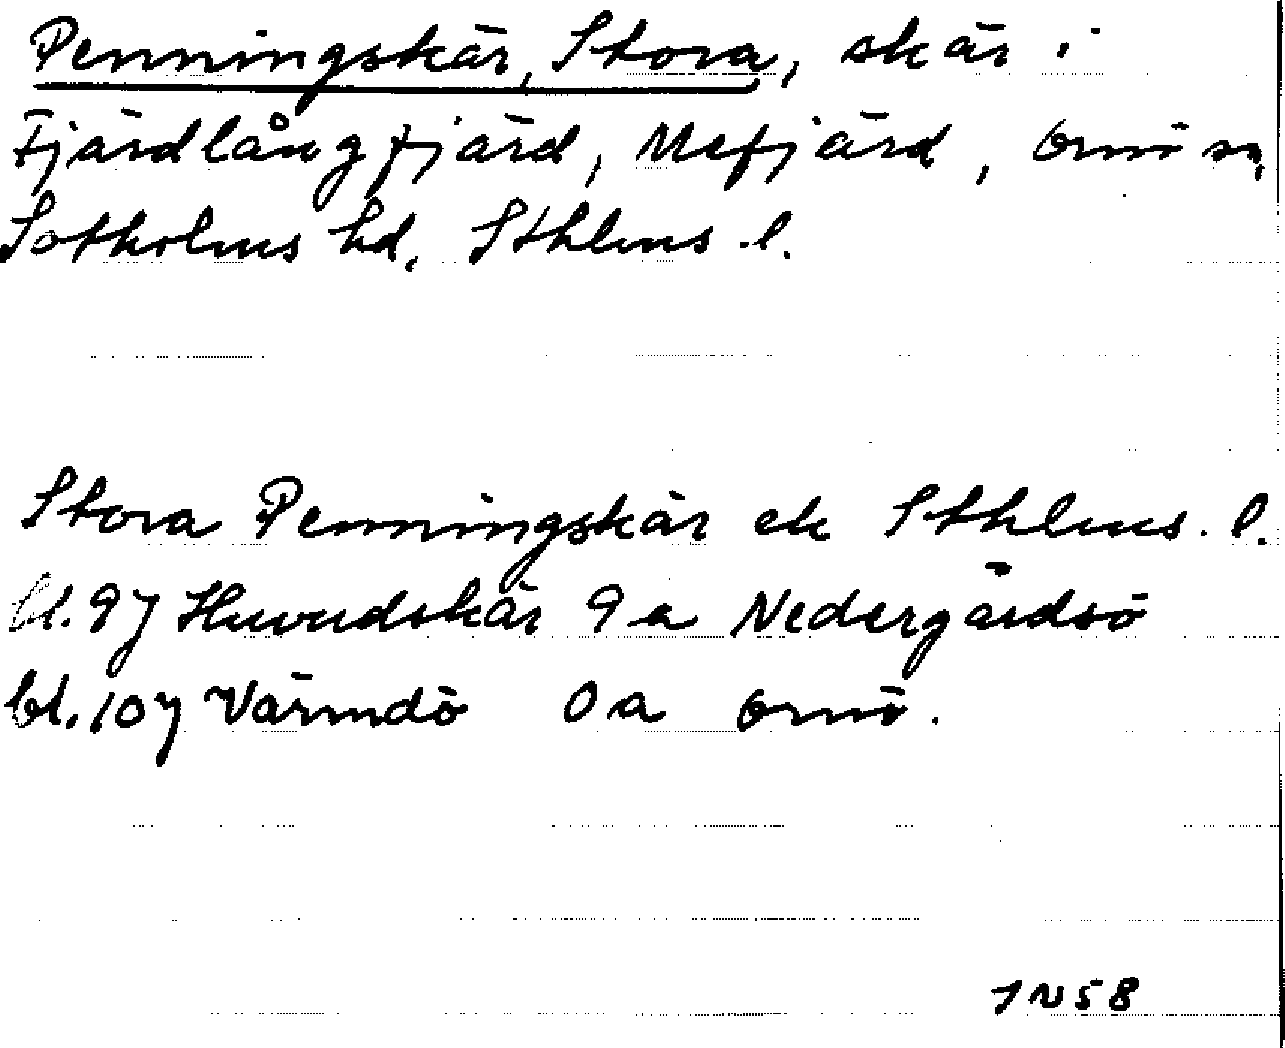 Penningskär, Stora, skär i
Fjärdlångfjärd, Mefjärd, Ornö sn,
Sotholms hd, Sthlms l.
Stora Penningskär ek Sthlms l.
bl. 97 Huvudskär 9 a Nedergårdsö
bl. 107 Värmdö 0 a Ornö.
JN58